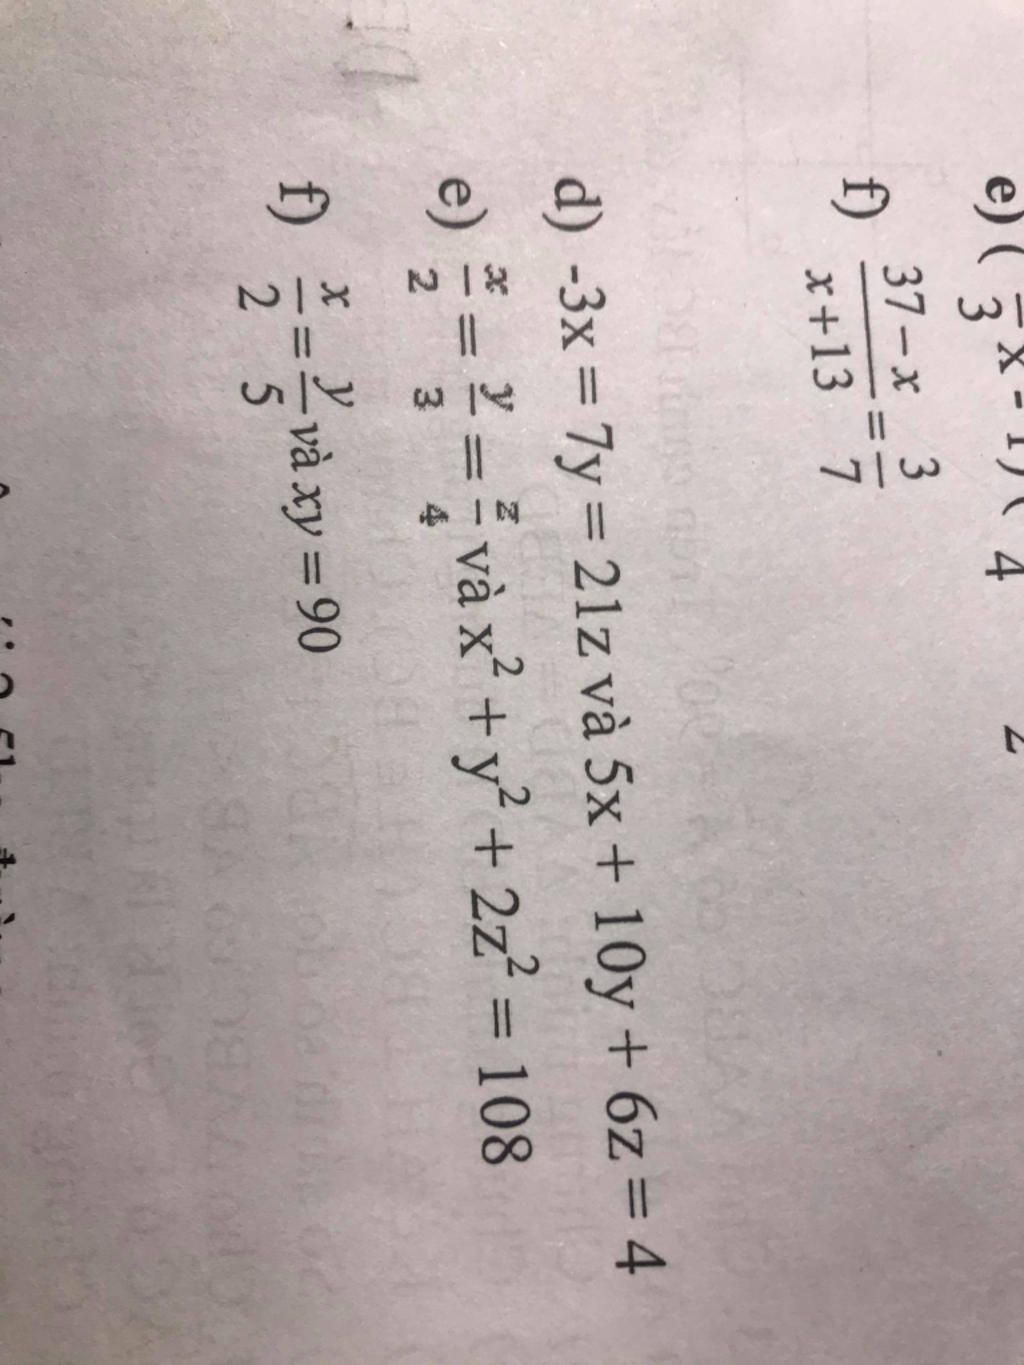 e) (3 x - 1) ( 4 2
f) 37 - x / x + 13 = 3 / 7
d) -3x = 7y = 21z và 5x + 10y + 6z = 4
e) x/2 = y/3 = z/4 và x² + y² + 2z² = 108
f) x/2 = y/5 và xy = 90